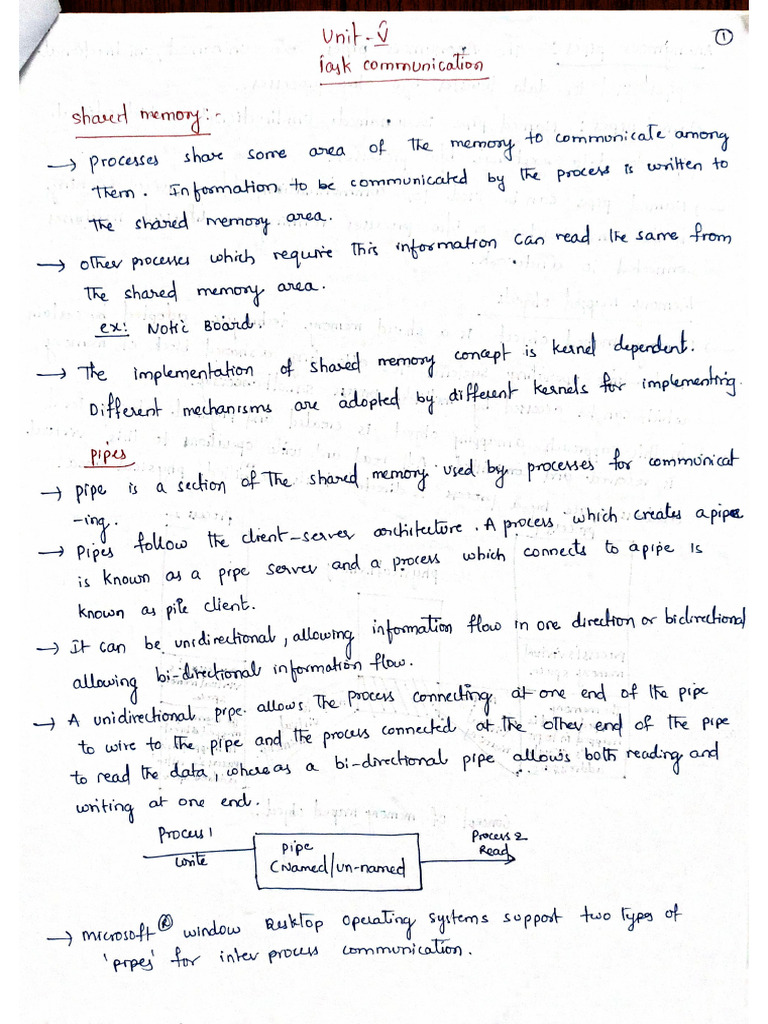 ①
Unit-V
Task communication
Shared memory:-
→ Processes share some area of the memory to communicate among
them. Information to be communicated by the process is written to
the shared memory area.
→ other processes which require this information can read the same from
the shared memory area.
ex: Notic Board.
→ The implementation of shared memory concept is kernel dependent.
Different mechanisms are adopted by different kernels for implementing.
pipes
→ pipe is a section of The shared memory used by processes for communicat
-ing.
→ Pipes follow the client-server architecture. A process which creates a pipe
is known as a pipe server and a process which connects to a pipe is
known as pipe client.
→ It can be unidirectional, allowing information flow in one direction or bidirectional
allowing bi-directional information flow.
→ A unidirectional pipe allows the process connecting at one end of the pipe
to wire to the pipe and the process connected at the other end of the pipe
to read the data, whereas a bi-directional pipe allows both reading and
writing at one end.
Process 1
write
pipe
(Named/un-named)
Process 2
Read
→ microsoft® window Desktop operating systems support two types of
'pipes' for inter process communication.